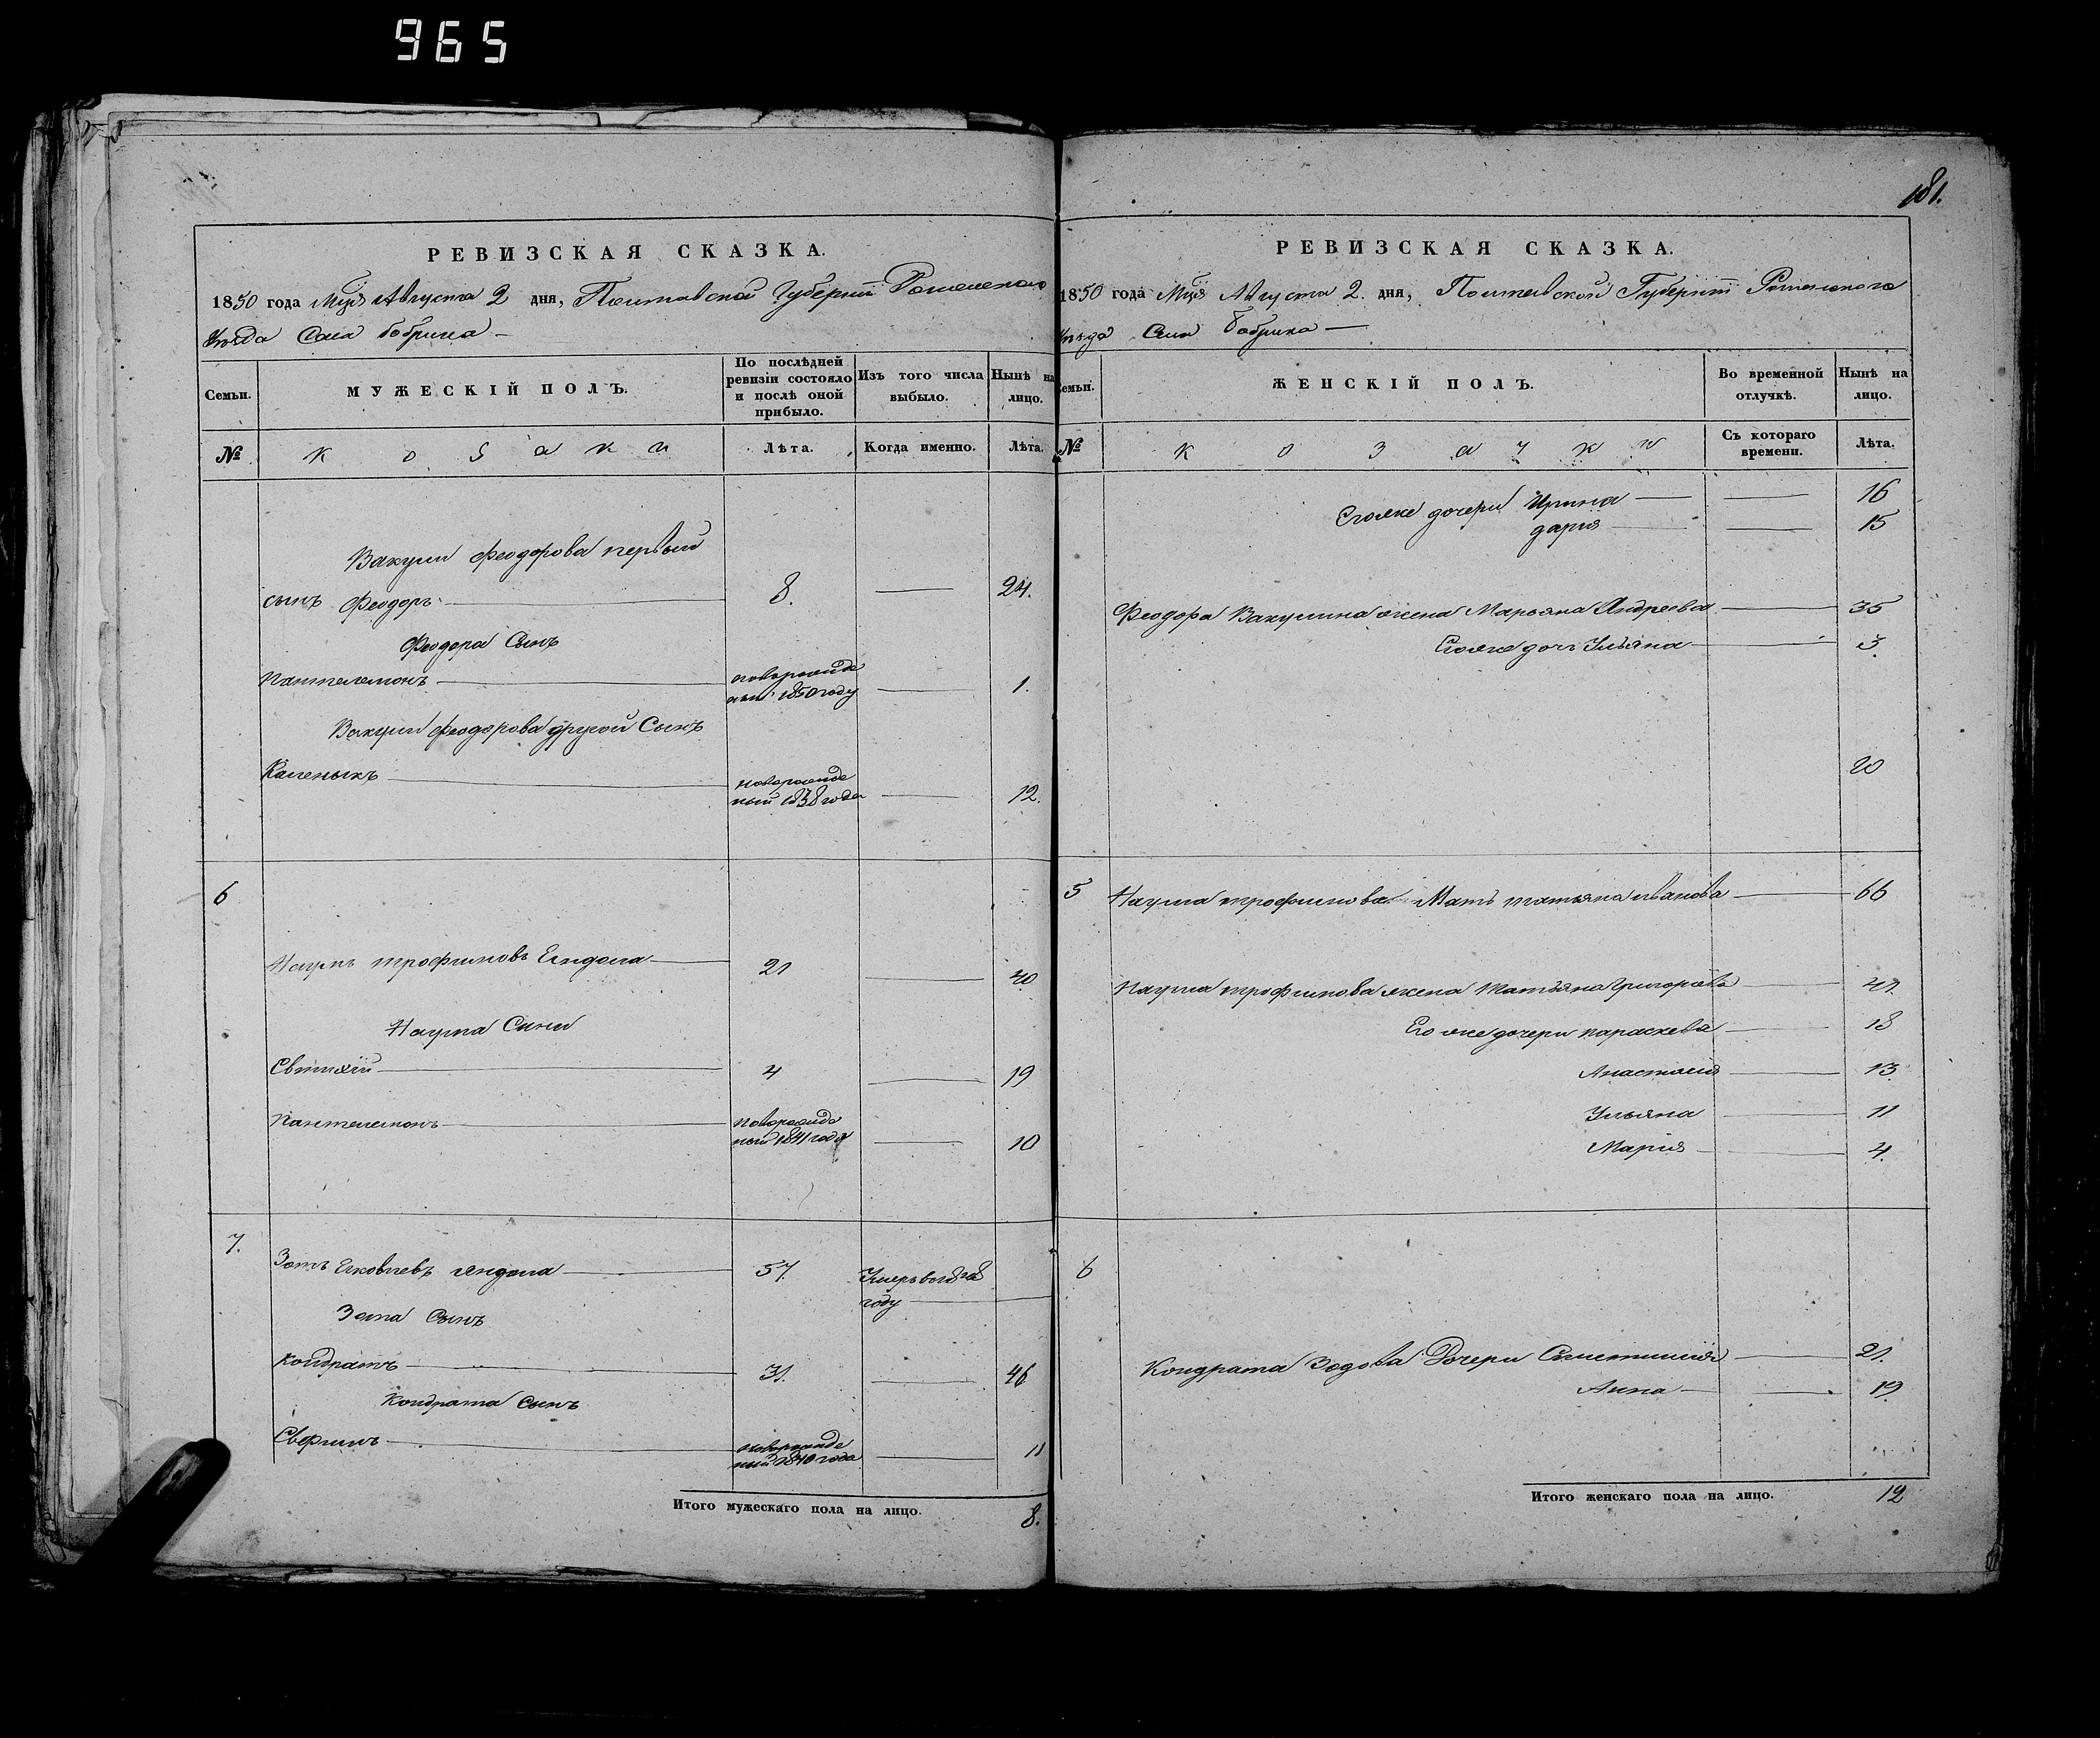 965
РЕВИЗСКАЯ СКАЗКА.
1850 года Мця Августа 2 дня, Полтавской Губерніи Роменского
Уезда Села Бобрика —
Семьи.
МУЖЕСКІЙ ПОЛЪ.
По послѣдней ревизіи состояло и послѣ оной прибыло.
Изъ того числа выбыло.
Нынѣ на лицо.
№
Козаки
Лѣта.
Когда именно.
Лѣта.
Вакули Феодорова первый
сынъ Феодоръ — 8. — 24.
Феодора Сынъ
Пантелемонъ — новорожде
ный 1850 году — 1.
Вакули Феодорова другой Сынъ
Каленыкъ — новорожде
ный 1838 года — 12.
6
Наумъ трофимовъ Ендола — 21 — 40
Наума Сини
Евтихій — 4 — 19
Пантелемонъ — новорожде
ный 1841 года — 10
7.
Зотъ Яковлевъ Яндола — 57. Умеръ в 1848
году —
Зота Сынъ
Кондратъ — 31. — 46
Кондрата Сынъ
Евфимъ — новорожде
ный 1840 года — 11
Итого мужескаго пола на лицо. 8.
181.
РЕВИЗСКАЯ СКАЗКА.
1850 года Мця Августа 2. дня, Полтавской Губерніи Роменского
Уезда Села Бобрика —
Семьи.
ЖЕНСКІЙ ПОЛЪ.
Во временной отлучкѣ.
Нынѣ на лицо.
№
Козачки
Съ котораго времени.
Лѣта.
Егоже дочери Ирина — — 16
дария — — 15
Феодора Вакулина жена Марьяна Андреева — 35
Егоже доч Ульяна — 3.
20
5 Наума трофимова Мать татьяна иванова — 66
Наума трофимова жена татьяна григорьева — 47.
Его же дочери параскева — 18
Анастасия — 13.
Ульяна — 11
Мария — 4.
6
Кондрата Зодова Дочери — 21.
Анна — 19.
Итого женскаго пола на лицо. 12